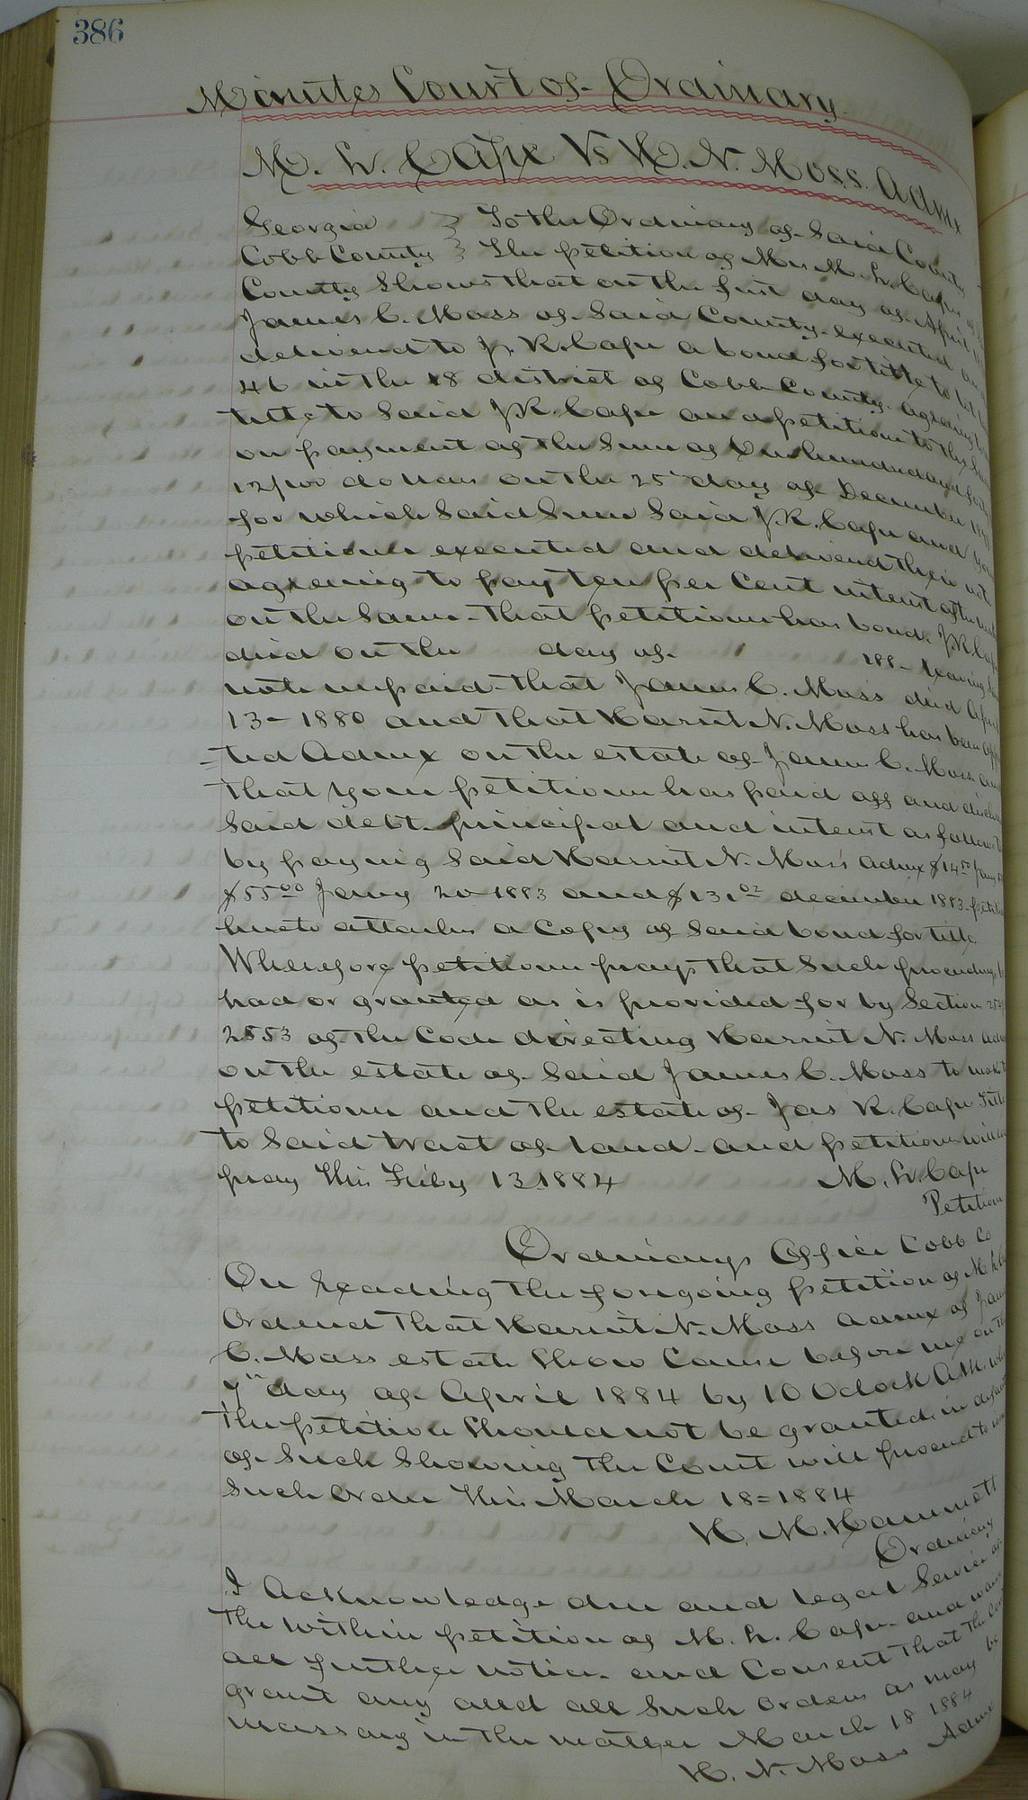 386
Minutes Court of Ordinary
M. L. Cape Vs H. N. Moss. Admx
Georgia } To the Ordinary of Said County
Cobb County } The petition of Mrs M. L. Cape of
County Shows that on the first day of April
James C. Moss of Said County executed and
delivered to J. R. Cape a bond for title to lot
46 in the 18 district of Cobb County agreeing
title to Said J R. Cape and petitioner
on payment of the Sum of One hundred and
12/100 dollars on the 25" day of December
for which Said Sum Said J. R. Cape and your
petitioner executed and delivered their note
agreeing to pay ten per Cent interest
on the Same. That petitioner has bond. J R. Cape
died on the day of 188- leaving
note unpaid. That James C. Moss died April
13- 1880 and that Harriet N. Moss has been
-ted Admx on the estate of James C. Moss and
that your petitioner has paid off and
Said debt principal and interest as follows
by paying Said Harriet N. Moss Admx $14.50
$55.00 Jany 20 1883 and $131.02 december 1883.
hereto attaches a Copy of Said bond for title.
Wherefore petitioner prays that Such proceedings
had or granted as is provided for by Section
2553 of the Code directing Harriet N. Moss Admx
on the estate of Said James C. Moss to make
petitioner and the estate of Jas R. Cape Title
to Said tract of land. and petitioner will
pray this Feby 13 1884 M. L. Cape
Petitioner
Ordinarys Office Cobb Co
On reading the foregoing petition of M L
Ordered that Harriet N. Moss Admx of James
C. Moss estate Show Cause before me on the
7th day of April 1884 by 10 Oclock A.M. why
the petition Should not be granted. in default
of Such Showing the Court will proceed to
Such Order this March 18=1884
H. M. Hammett
Ordinary
I Acknowledge due and legal Service of
the within petition of M. L. Cape. and waive
all further notice. and Consent that the Court
grant any and all Such orders as may be
necessary in the matter March 18 1884
H. N. Moss Admx